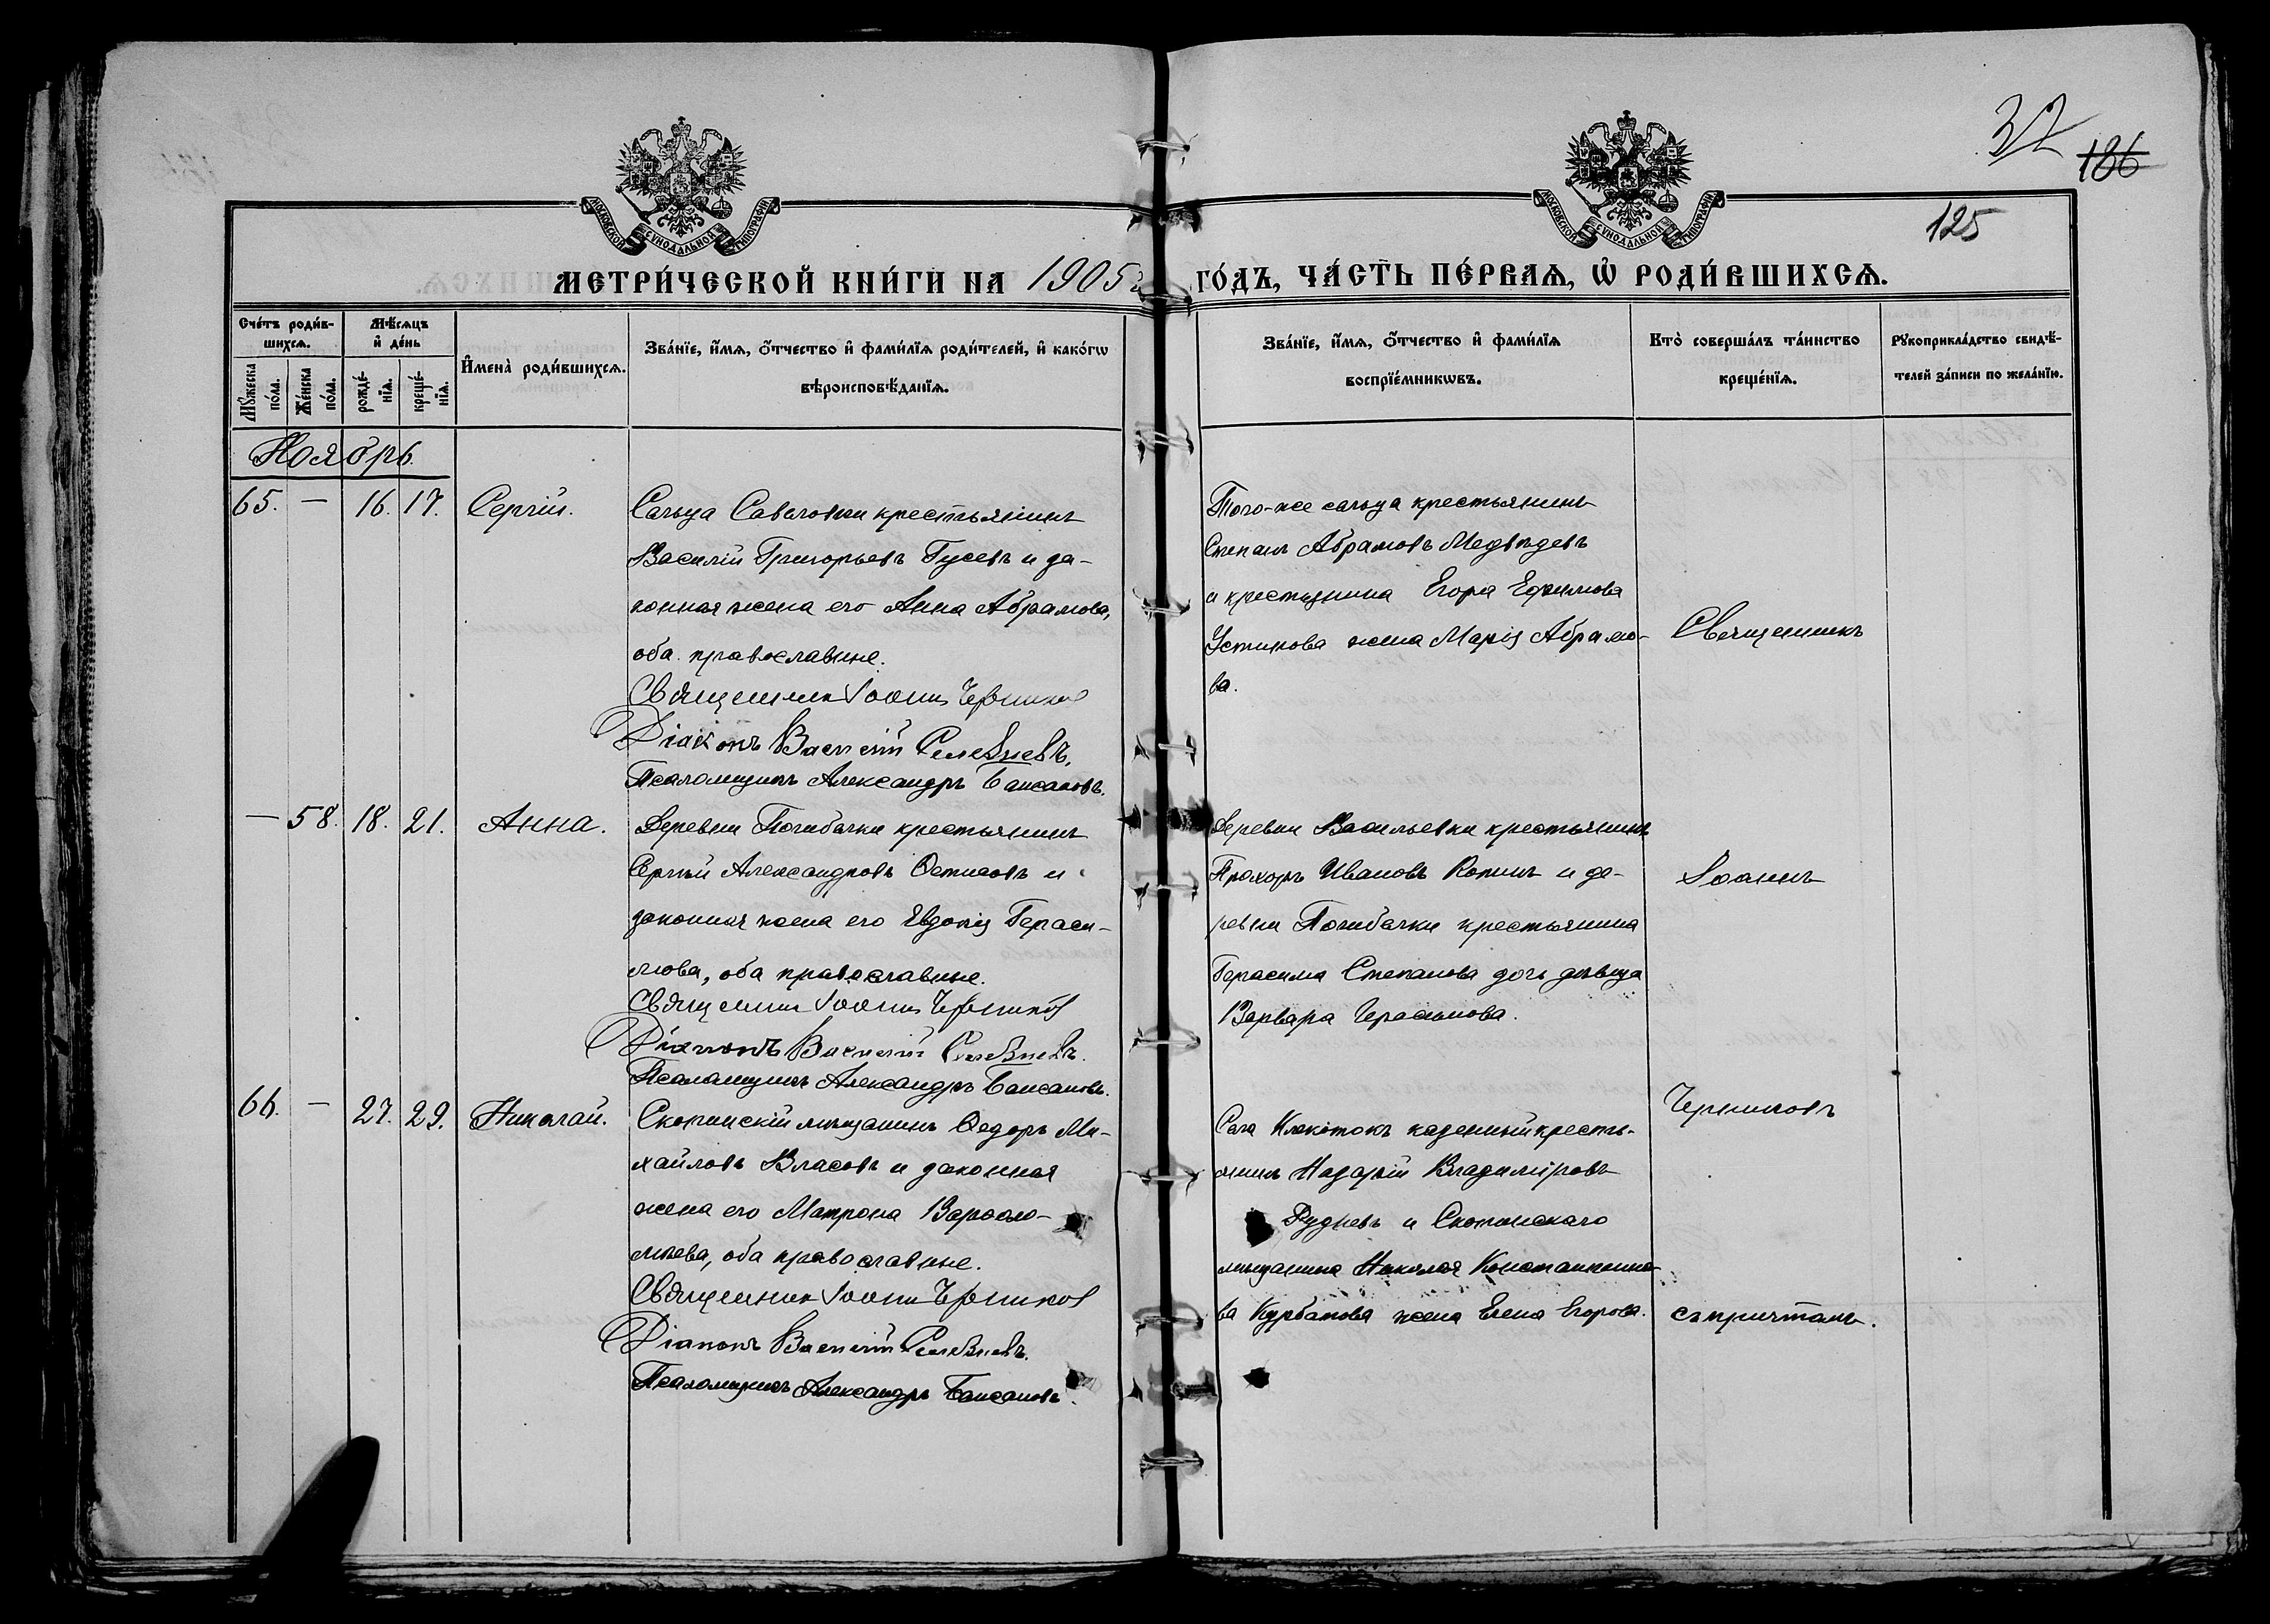 32
186
125
МОСКОВСКОЙ СѴНОДАЛЬНОЙ ТИПОГРАФІИ
МОСКОВСКОЙ СѴНОДАЛЬНОЙ ТИПОГРАФІИ
МЕТРИ́ЧЕСКОЙ КНИ́ГИ НА 1905
ГО́ДЪ, ЧА́СТЬ ПЕ́РВАѦ, Ѡ҆ РОДИ́ВШИХСѦ.
Сче́тъ роди́в-
шихсѧ.
Мꙋ́жеска по́ла.
Же́нска по́ла.
Мѣ́сѧцъ
и҆ де́нь
рожде́-
нїѧ.
креще́-
нїѧ.
И҆мена̀ роди́вшихсѧ.
Зва́нїе, и҆́мѧ, ѻ҆́тчество и҆ фами́лїѧ роди́телей, и҆ како́гѡ
вѣроисповѣ́данїѧ.
Зва́нїе, и҆́мѧ, ѻ҆́тчество и҆ фами́лїѧ
воспрїе́мникѡвъ.
Кто̀ соверша́лъ та́инство
креще́нїѧ.
Рꙋкоприкла́дство свидѣ́-
телей за́писи по жела́нїю.
Ноябрь.
65. — 16. 17. Сергій.
крестьянинъ
Василій Григорьевъ Гусевъ и за-
конная жена его Анна Абрамова,
оба православные.
Священник Іоанн Черников
Діаконъ Василій Селезневъ.
Псаломщикъ Александръ
Того-же сельца крестьянинъ
Степанъ Абрамовъ Медвѣдевъ
и крестьянина Егора Ефимова
Устинова жена Марія Абрамо-
ва.
Священникъ
— 58. 18. 21. Анна.
Деревни Погибалки крестьянинъ
Сергѣй Александровъ и
законная жена его Евдокія Гераси-
мова, оба православные.
Священник Іоанн Черников
Діаконъ Василій Селезневъ.
Псаломщикъ Александръ
Деревни Васильевки крестьянинъ
Прохоръ Ивановъ и де-
ревни Погибалки крестьянина
Герасима Степанова дочь дѣвица
Варвара Герасимова.
Іоаннъ
66. — 27. 29. Николай.
Скопинскій мѣщанинъ Ѳедоръ Ми-
хайловъ Власовъ и законная
жена его Матрона Варѳоло-
мѣева, оба православные.
Священник Іоанн Черников
Діаконъ Василій Селезневъ.
Псаломщикъ Александръ
Села Клекотокъ казенный кресть-
янинъ Назарій Владиміровъ
Рудневъ и Скопинскаго
мѣщанина Николая Константино-
ва Курбатова жена Елена Егорова.
Черниковъ
съ причтомъ.